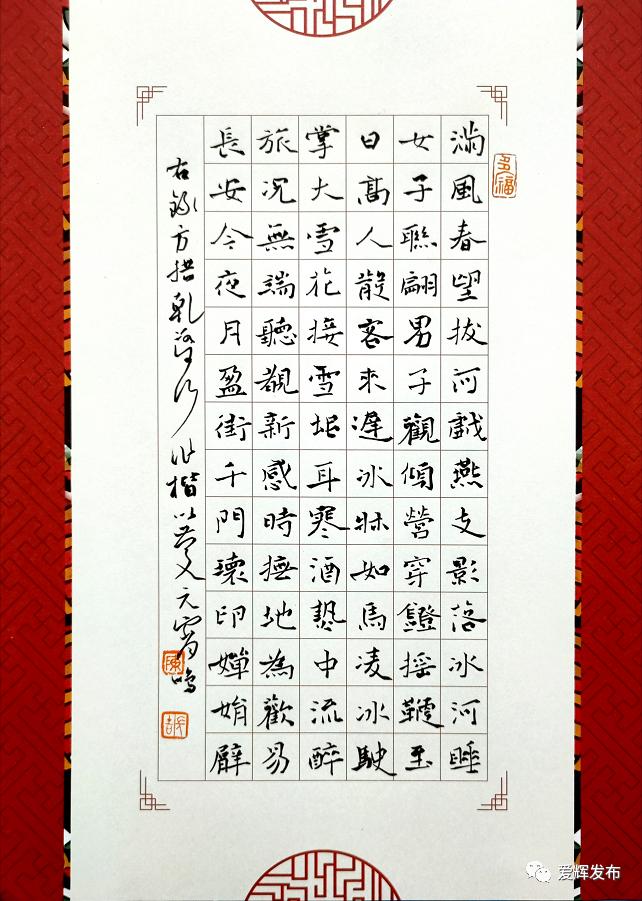 多福
滿風春望拔河戲燕支影落冰河睡
女子聯翩男子觀傾營穿鐙搖鞭至
日高人散客來遲冰牀如馬凌冰駛
掌大雪花接雪地耳寒酒熱中流醉
旅況無端聽覩新感時撫地為歡易
長安今夜月盈街千門環印嬋娟臂
右錄方拱乾 楷以 元宵 鳴
爱辉发布